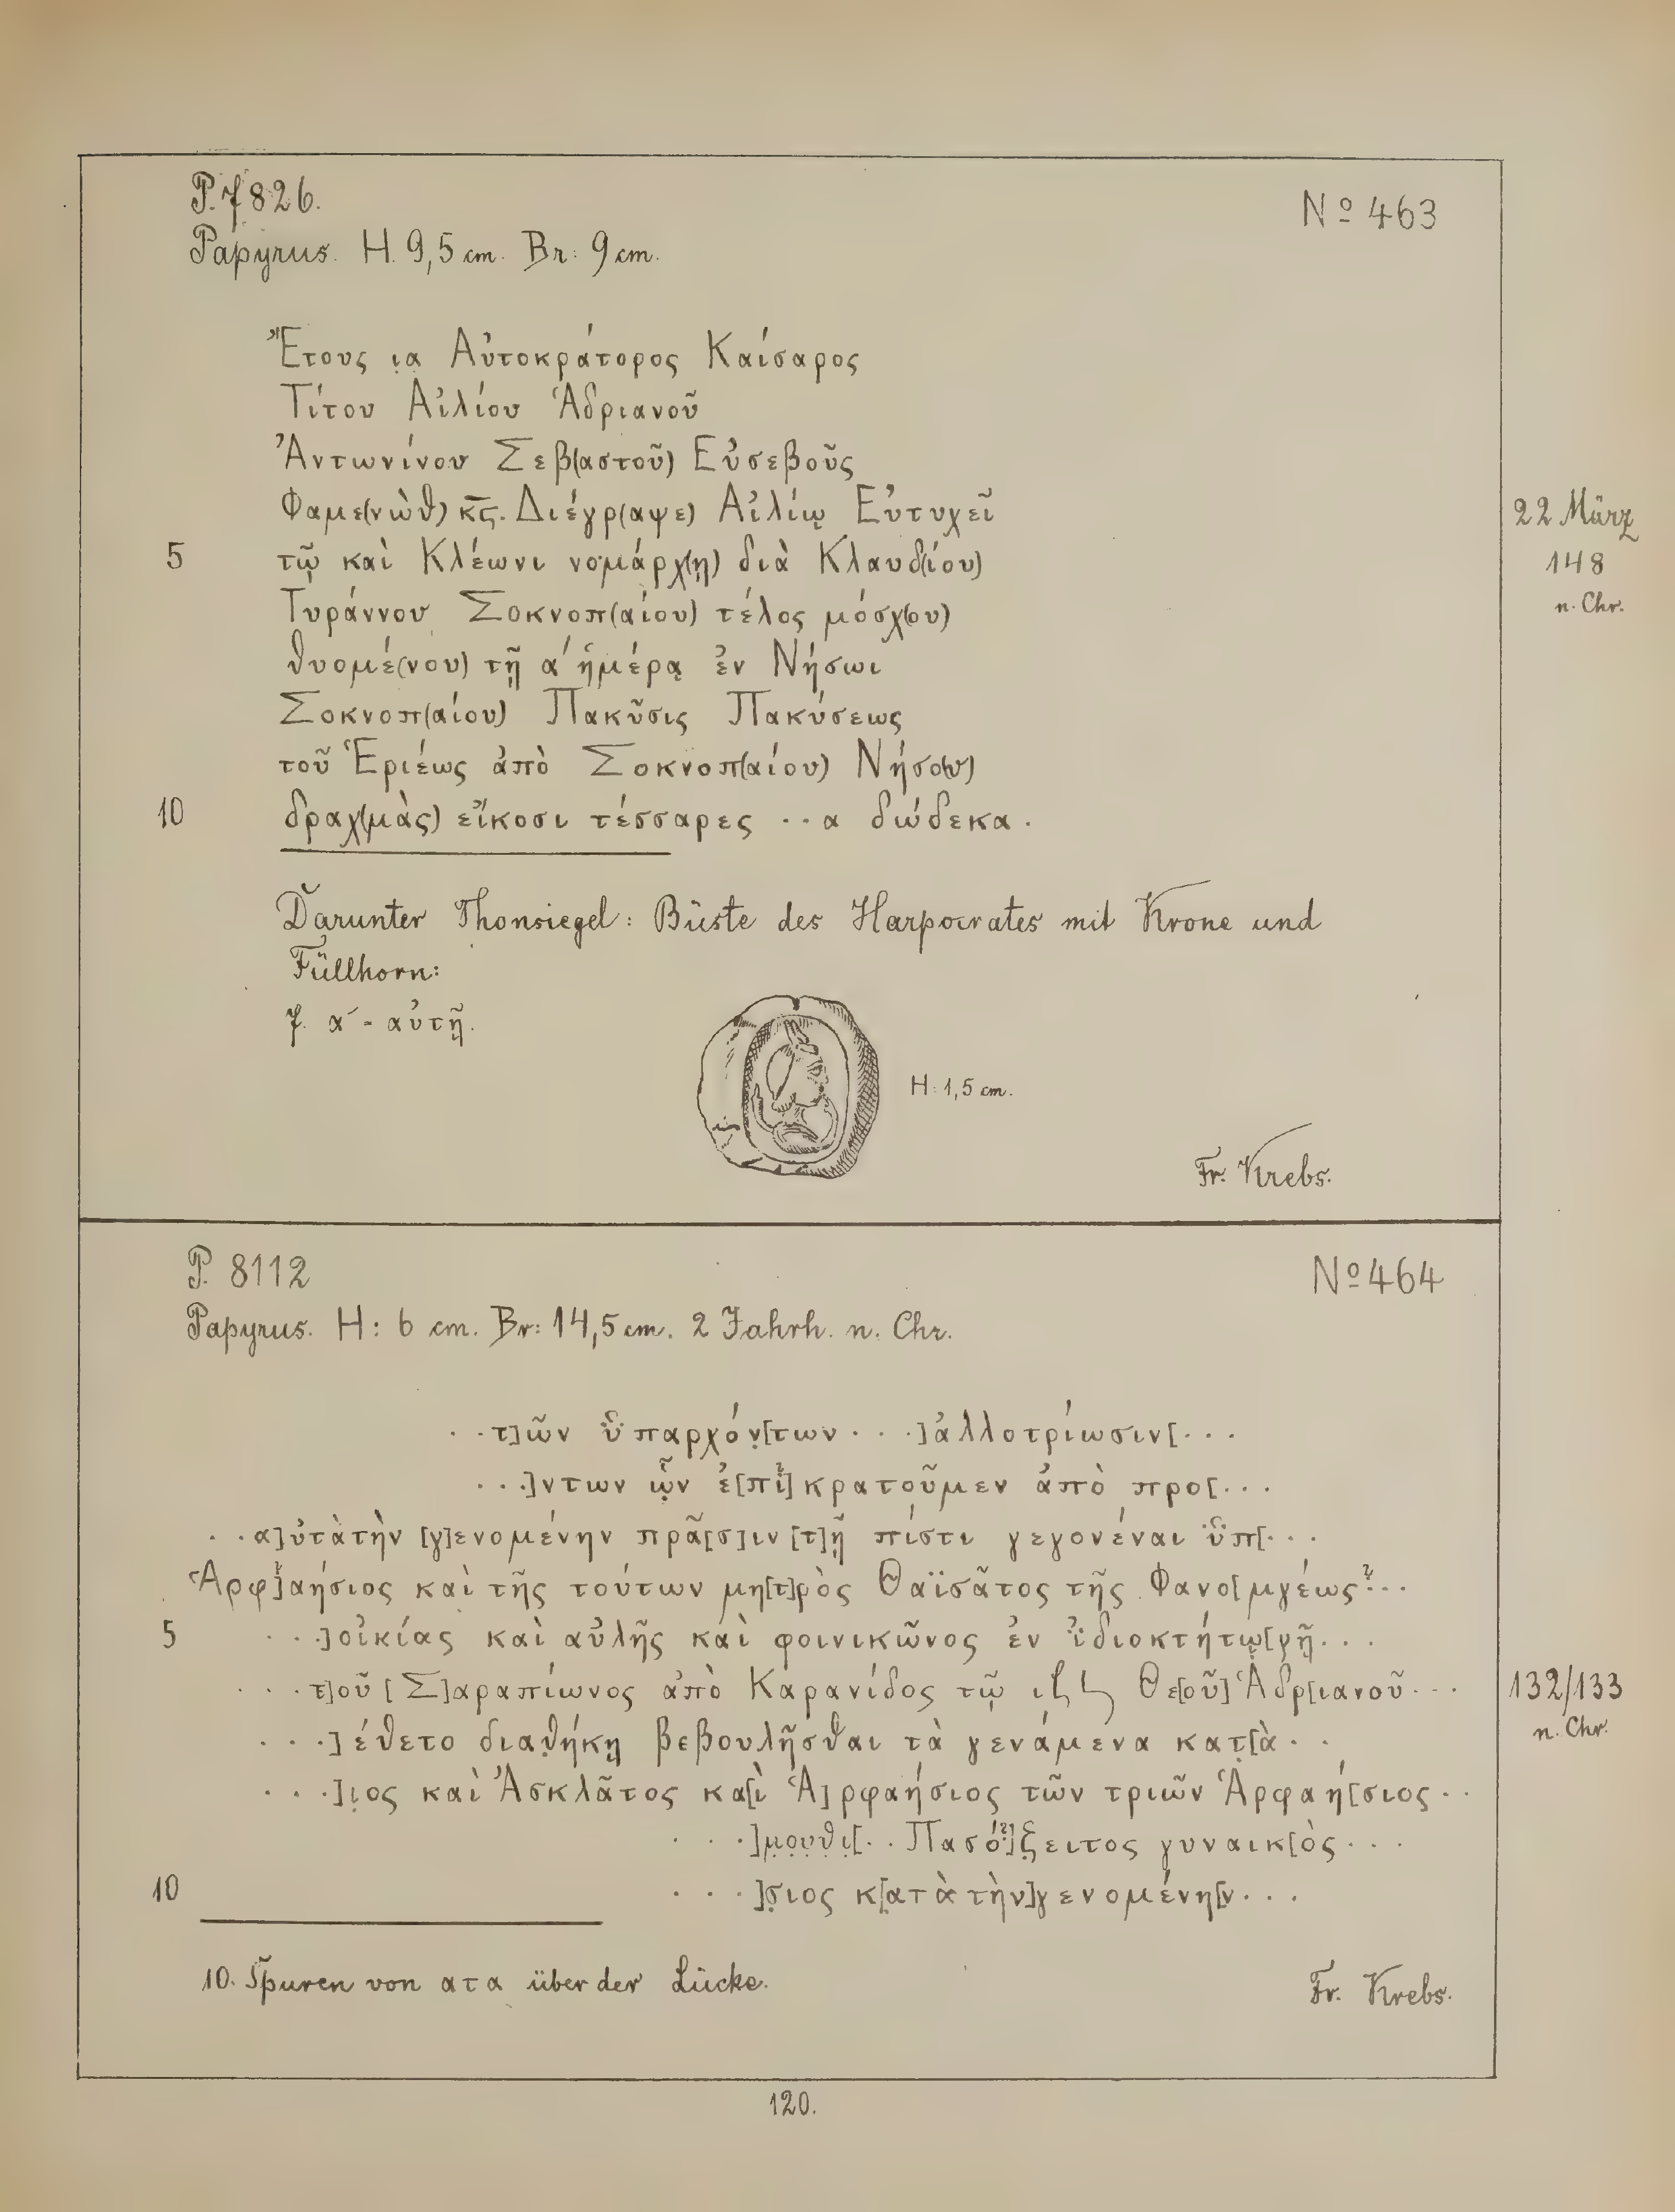 P. 7826.
Nº 463
Papyrus. H. 9,5 cm. Br: 9 cm.
Ἔτους ι̣α Αὐτοκράτορος Καίσαρος
Τίτου Αἰλίου Ἁδριανοῦ
Ἀντωνίνου Σεβ(αστοῦ) Εὐσεβοῦς
Φαμε(νὼθ) κ̅ϛ̅. Διέγρ(αψε) Αἰλίῳ Εὐτυχεῖ
22 März
148
n. Chr.
5 τῷ καὶ Κλέωνι νομάρχ(ῃ) διὰ Κλαυδ(ίου)
Τυράννου Σοκνοπ(αίου) τέλος μόσχ(ου)
θυομέ(νου) τῇ α´ ἡμέρᾳ ἐν Νήσωι
Σοκνοπ(αίου) Πακῦσις Πακύσεως
τοῦ Ἑριέως ἀπὸ Σοκνοπ(αίου) Νήσο(υ)
10 δραχ(μὰς) εἴκοσι τέσσαρες ..α δώδεκα.
Darunter Thonsiegel: Büste des Harpocrates mit Krone und
Füllhorn:
7. α´ = αὐτῇ.
H: 1,5 cm.
Fr. Krebs.
P. 8112
Nº 464
Papyrus. H: 6 cm. Br: 14,5 cm. 2 Jahrh. n. Chr.
. . τ]ῶν ὑ̈παρχόν̣[των . . .]ἀλλοτρίωσιν[. . .
. . .]ντων ὧ̣ν ἐ[πι̣]κρατοῦμεν ἀπὸ προ[. . .
. . α]ὐτὰ τὴν [γ]ενομένην πρᾶ[σ]ιν [τ]ῇ πίστι γεγονέναι ὑ̈π[. . .
Ἁρφ]αήσιος καὶ τῆς τούτων μη[τ]ρὸς Θαϊσᾶτος τῆς Φανο[μγέως?. . .
5 . . .]οἰκίας καὶ αὐλῆς καὶ φοινικῶνος ἐν ἰ̈διοκτήτῳ[γῇ. . .
. . . τ]οῦ [Σ]αραπίωνος ἀπὸ Καρανίδος τῷ ιζ ϟ Θε[οῦ] Ἁδρ[ιανοῦ . . .
132/133
n. Chr.
. . .]έθετο διαθ̣ήκῃ βεβουλῆσθαι τὰ γενάμενα κατ̣[ὰ . .
. . .]ι̣ος καὶ Ἀσκλᾶτος κα[ὶ Ἁ]ρφαήσιος τῶν τριῶν Ἁρφαή[σιος . .
. . .]μ̣ο̣υ̣θ̣ι̣[. . Πασό[?]ξ̣ειτος γυναικ[ὸς . . .
10 . . .]σ̣ιος κ[ατὰ τὴν]γενομένη[ν . . .
10. Spuren von ατα über der Lücke.
Fr. Krebs.
120.